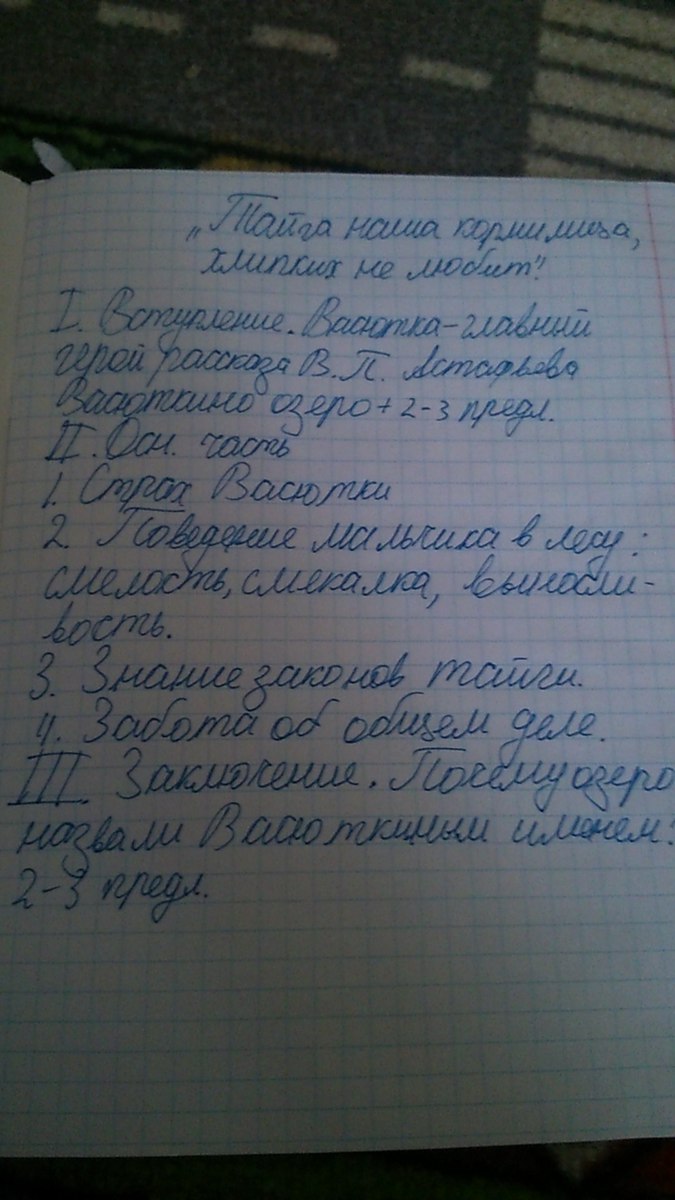 „Тайга наша кормилица,
хлипких не любит"!
I. Вступление. Васютка-главный
герой рассказа В.П. Астафьева
Васюткино озеро + 2-3 предл.
II. Осн. часть
1. Страх Васютки
2. Поведение мальчика в лесу:
смелость, смекалка, выносли-
вость.
3. Знание законов тайги.
4. Забота об общем деле.
III. Заключение. Почему озеро
назвали Васюткиным именем:
2-3 предл.